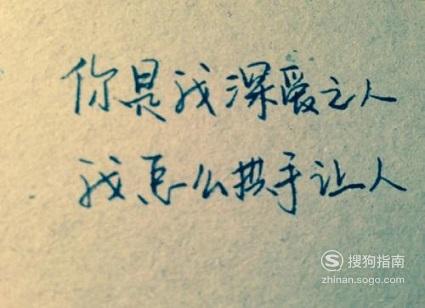 你是我深爱之人
我怎么拱手让人
搜狗指南
zhinan.sogo.com